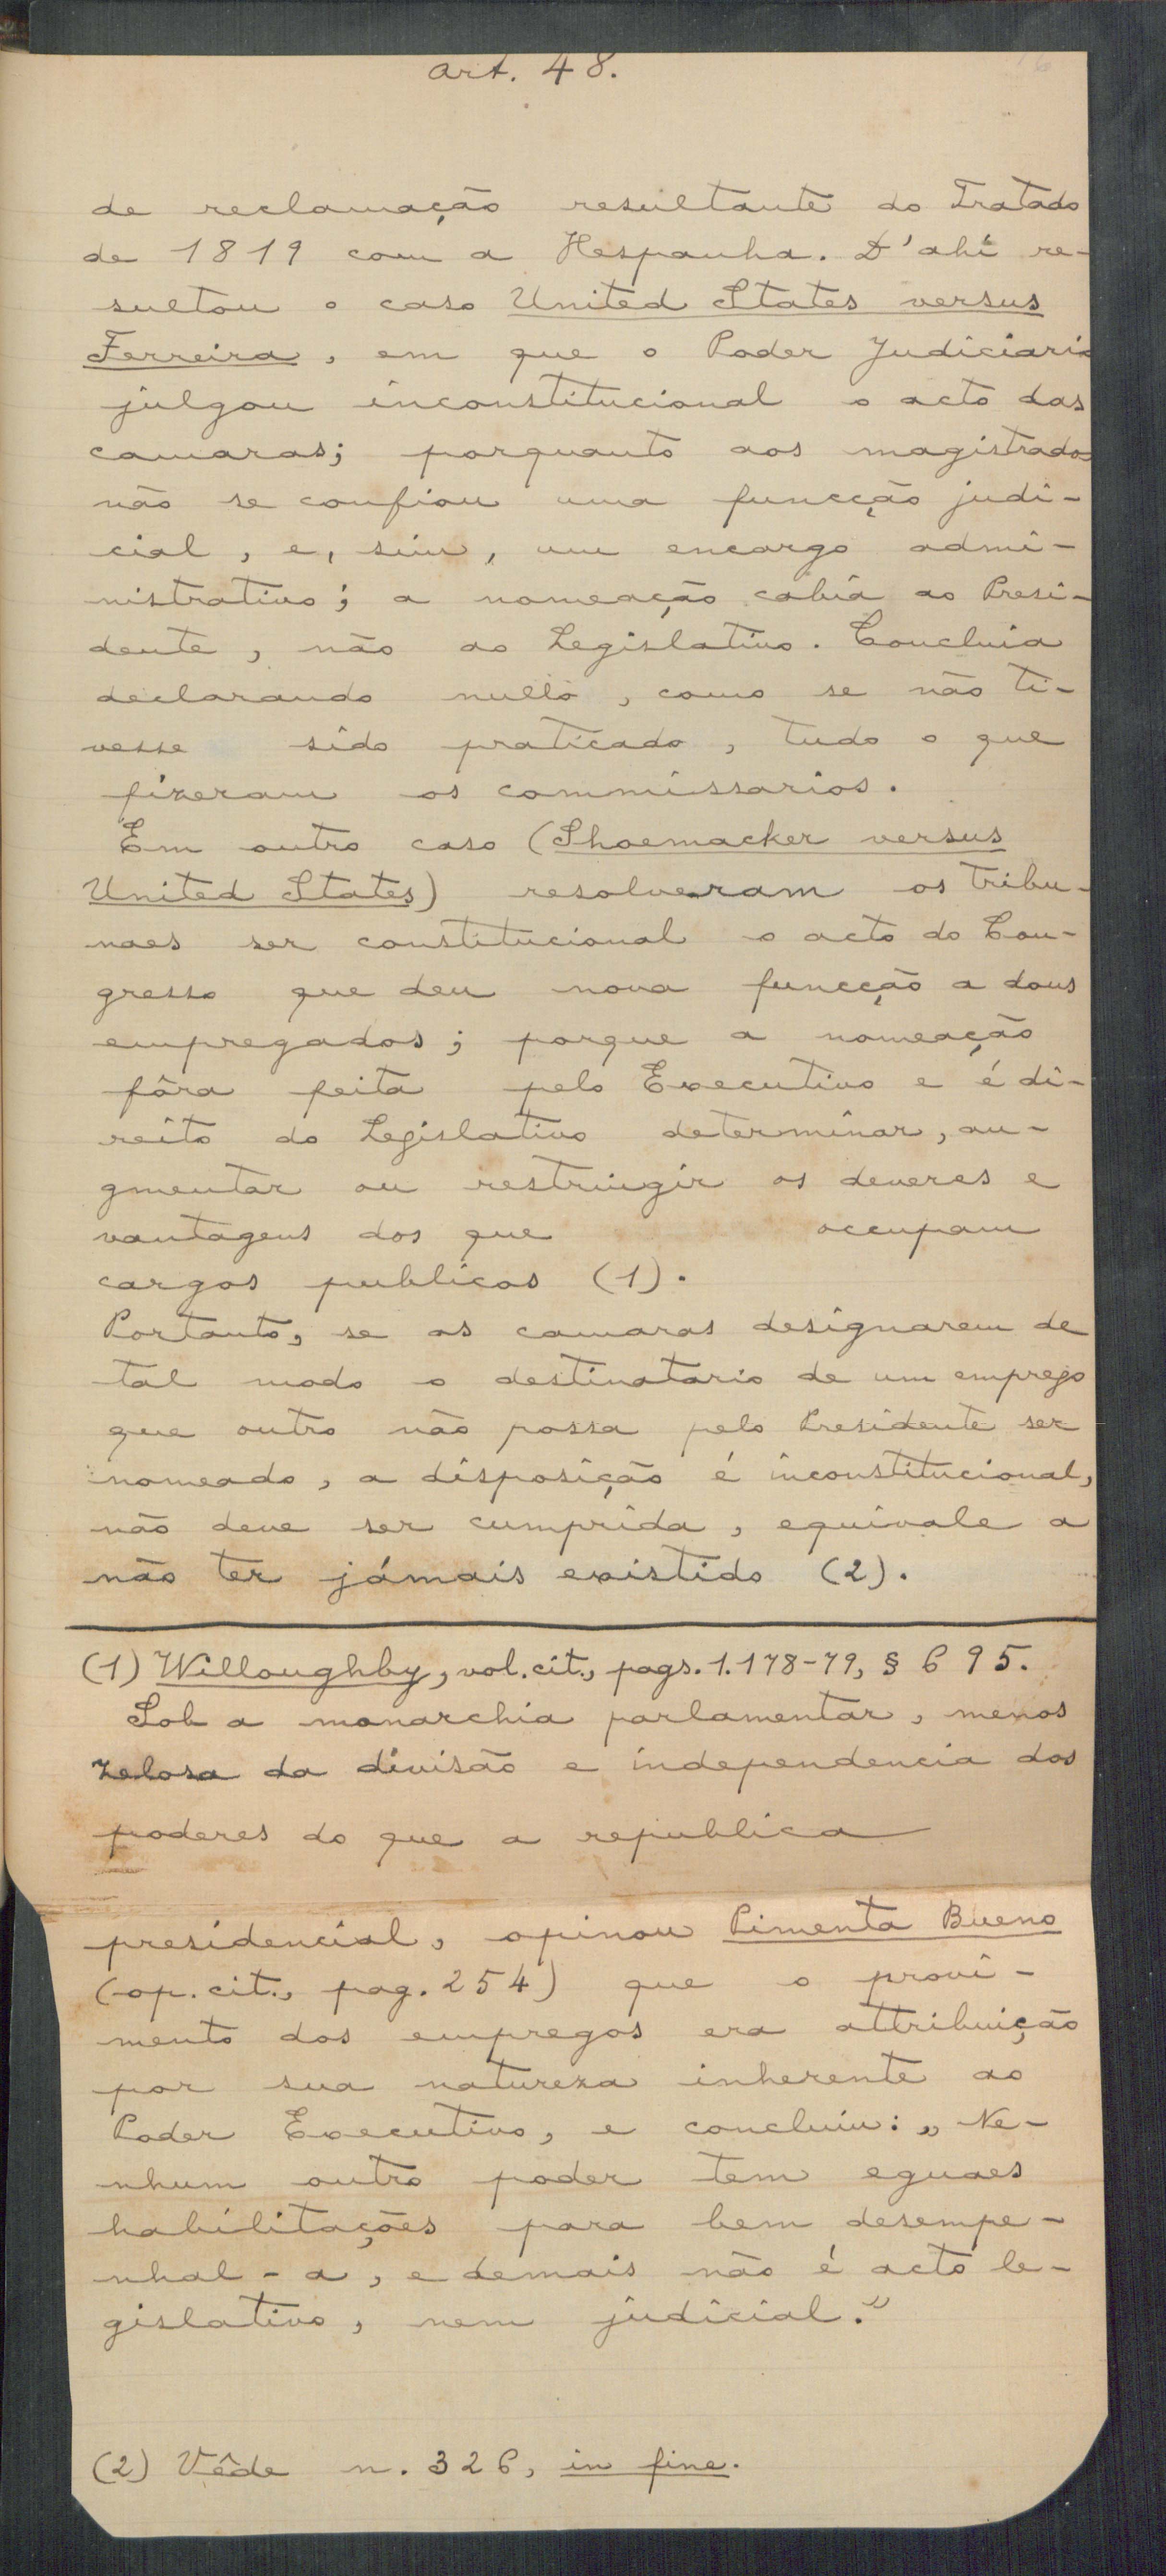 Art. 48.
de reclamação resultante do Tratado
de 1819 com a Hespanha. D'ahi re-
sultou o caso United States versus
Ferreira, em que o Poder Judiciario
julgou inconstitucional o acto das
camaras; porquanto aos magistrados
não se confiou uma funcção judi-
cial, e, sim, um encargo admi-
nistrativo; a nomeação cabia ao Presi-
dente, não ao Legislativo. Concluia
declarando nullo, como se não ti-
vesse sido praticado, tudo o que
fizeram os commissarios.
Em outro caso (Shoemacker versus
United States) resolveram os tribu-
naes ser constitucional o acto do Con-
gresso que deu nova funcção a dous
empregados; porque a nomeação
fôra feita pelo Executivo e é di-
reito do Legislativo determinar, au-
gmentar ou restringir os deveres e
vantagens dos que occupam
cargos publicos (1).
Portanto, se as camaras designarem de
tal modo o destinatario de um emprego
que outro não possa pelo Presidente ser
nomeado, a disposição é inconstitucional,
não deve ser cumprida, equivale a
não ter jámais existido (2).
(1) Willoughby, vol. cit., pags. 1.178-79, § 695.
Sob a monarchia parlamentar, menos
zelosa da divisão e independencia dos
poderes do que a republica
presidencial, opinou Pimenta Bueno
(op. cit., pag. 254) que o provi-
mento dos empregos era attribuição
por sua natureza inherente ao
Poder Executivo, e concluiu: „Ne-
nhum outro poder tem eguaes
habilitações para bem desempe-
nhal-a, e demais não é acto le-
gislativo, nem judicial.”
(2) Vêde n. 326, in fine.